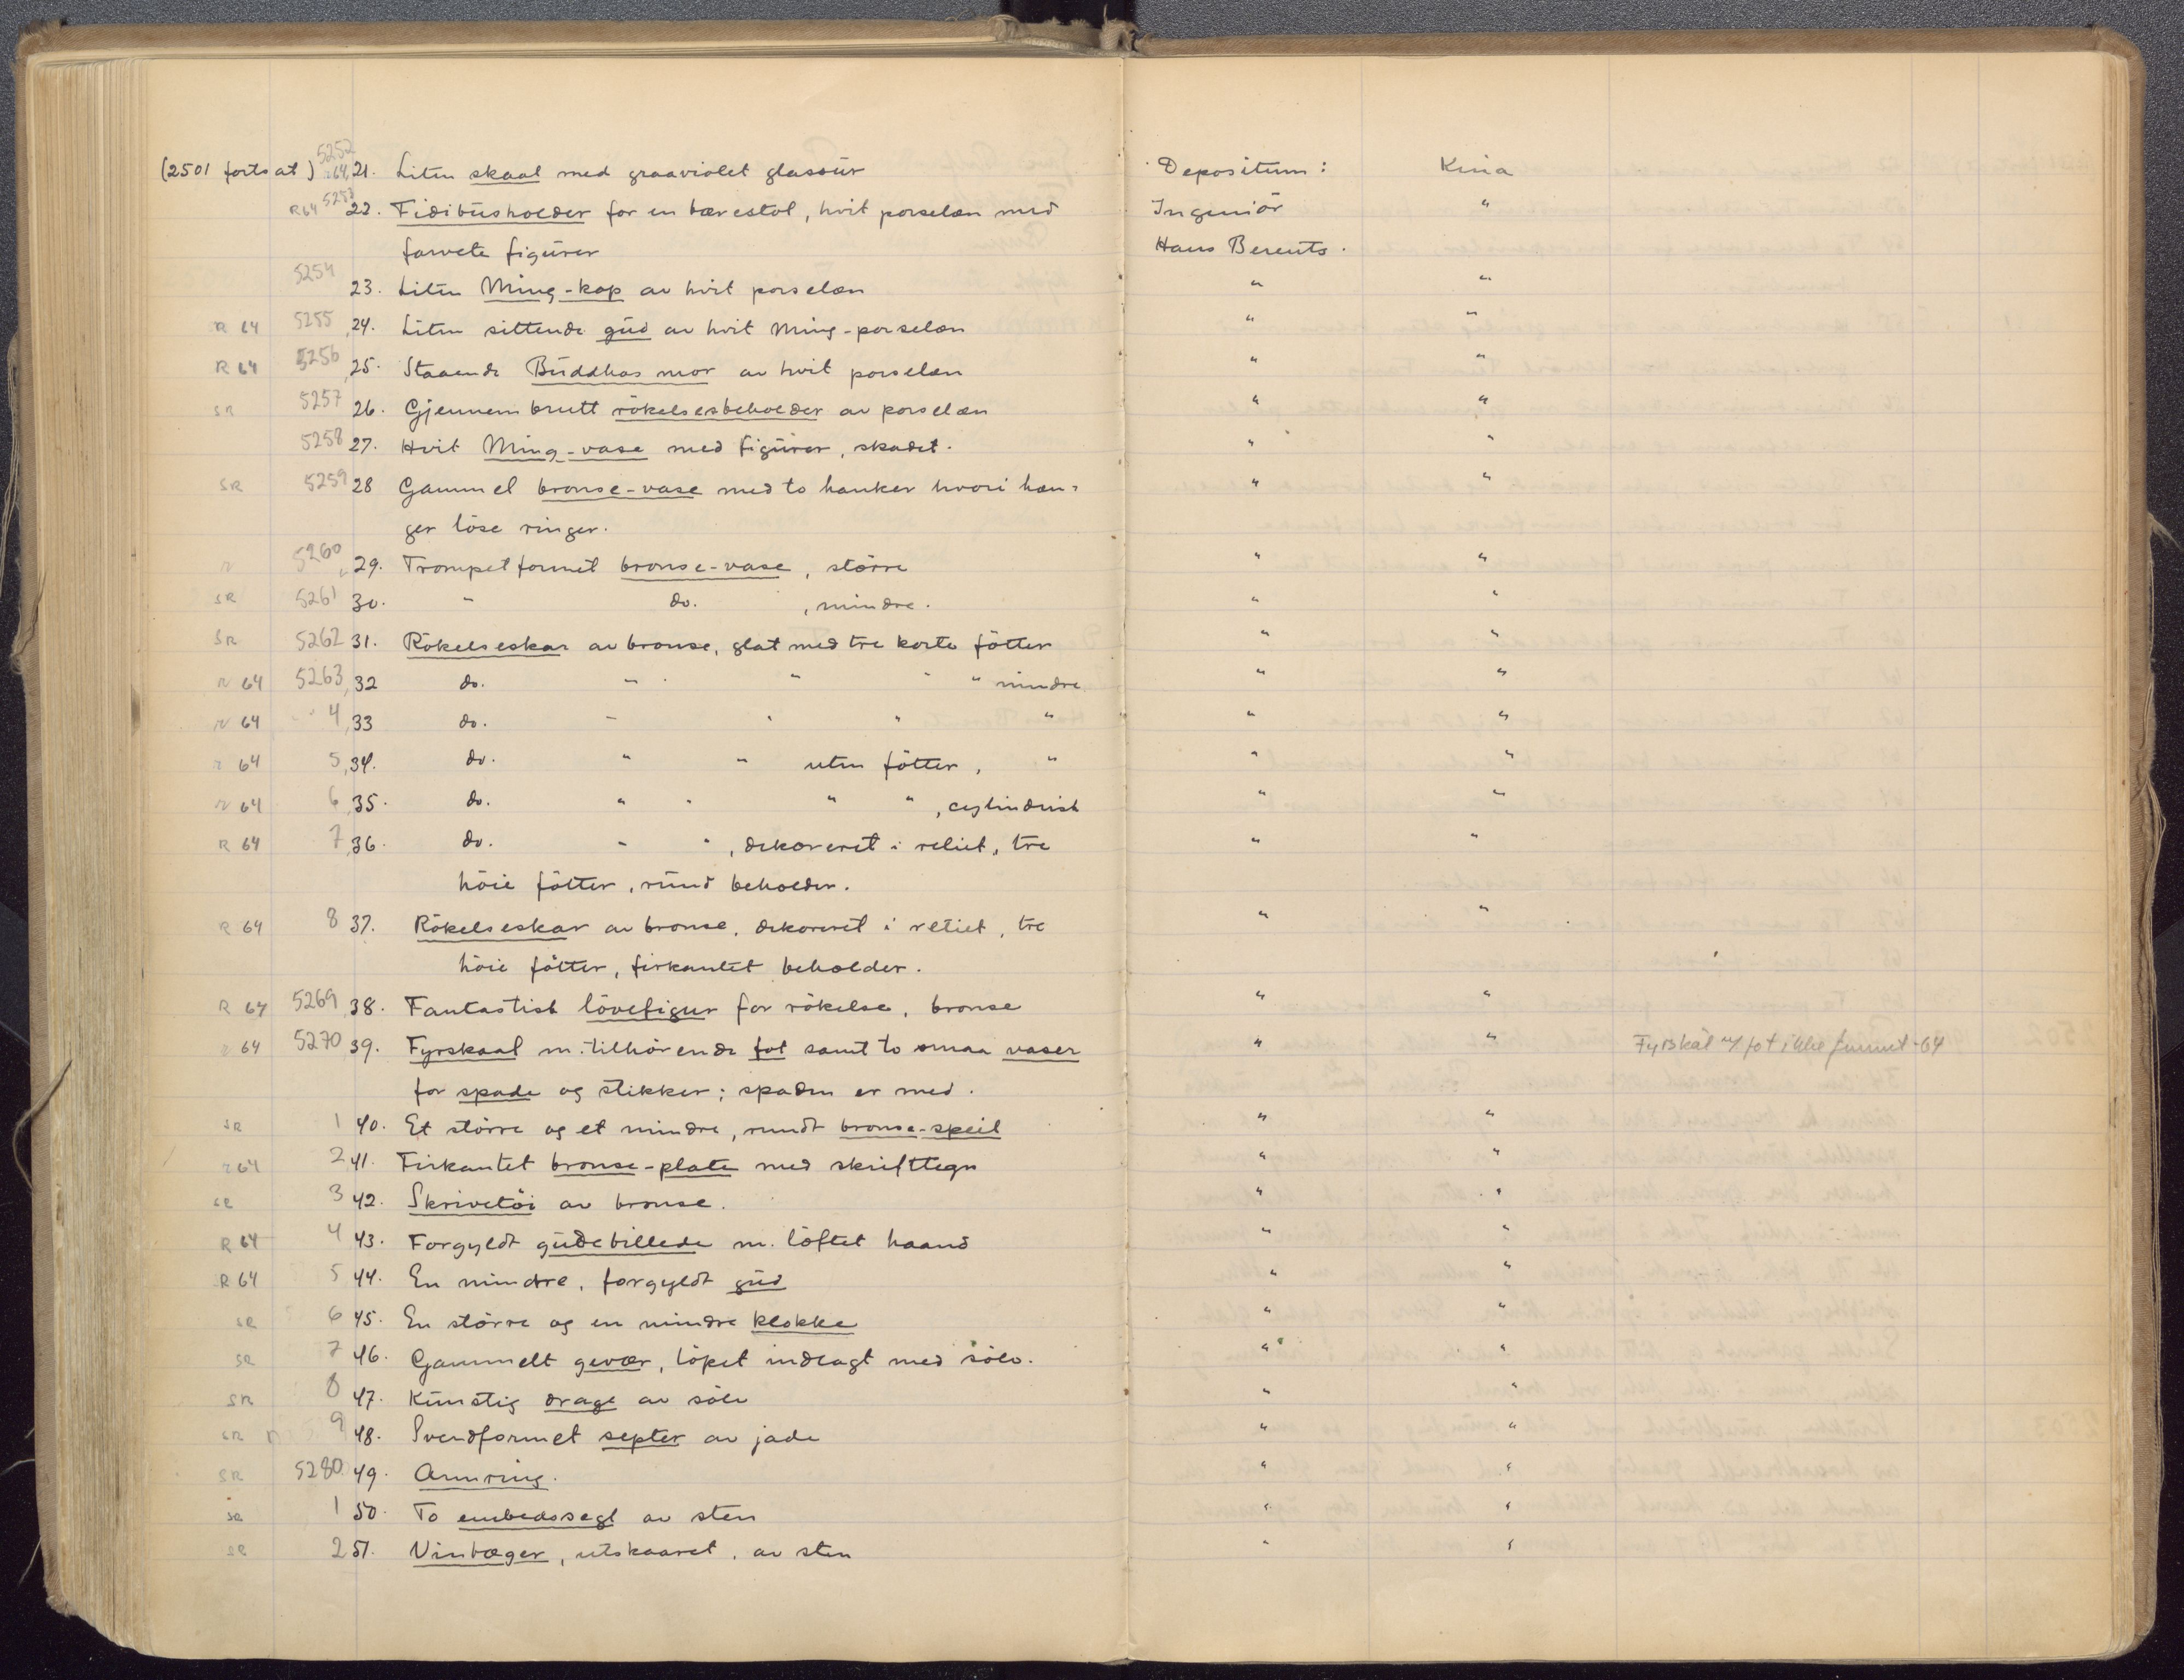 (2501 fortsat) r64 5252 21. Liten skaal med graaviolet glassur Depositum: Kina
R64 5253 22. Fidibusholder for en bærestol, hvit porselæn med Ingeniör "
farvete figurer Hans Berents.
5254 23. Liten Ming-kop av hvit porselæn " "
R 64 5255 24. Liten sittende gud av hvit Ming-porselæn " "
R 64 5256 25. Staaende Buddhas mor av hvit porselæn " "
SR 5257 26. Gjennembrutt rökelsesbeholder av porselæn " "
5258 27. Hvit Ming-vase med figurer, skadet. " "
SR 5259 28 Gammel bronse-vase med to hanker hvori hæn= " "
ger löse ringer.
r 5260 29. Trompetformet bronse-vase, större " "
SR 5261 30. " do. , mindre. " "
SR 5262 31. Rökelseskar av bronse, glat med tre korte fötter " "
r 64 5263 32 do. " " " " mindre " "
r 64 4 33 do. " " " " " "
r 64 5 34. do. " " uten fötter, " " "
r 64 6 35. do. " " " " , cylindrisk " "
R 64 7 36. do. " " , dekoreret i relief, tre " "
höie fötter, rund beholder.
R 64 8 37. Rökelseskar av bronse, dekoreret i relief, tre " "
höie fötter, firkantet beholder.
R 64 5269 38. Fantastisk lövefigur for rökelse, bronse " "
r 64 5270 39. Fyrskaal m. tilhörende fot samt to smaa vaser " " Fyrskål m/ fot ikke funnet -64
for spade og stikker; spaden er med.
SR 1 40. Et större og et mindre, rundt bronse-speil " "
r 64 2 41. Firkantet bronse-plate med skrifttegn " "
SR 3 42. Skrivetöi av bronse. " "
R 64 4 43. Forgyldt gudebillede m. löftet haand " "
R 64 5 44. En mindre, forgyldt gud " "
SR 6 45. En större og en mindre klokke " "
SR 7 46. Gammelt gevær, löpet indlagt med sölv. " "
SR 8 47. Kunstig drage av sölv " "
SR 9 48. Sverdformet septer av jade " "
SR 5280 49. Armring. " "
SR 1 50. To embedssegl av sten " "
SR 2 51. Vinbæger, utskaaret, av sten " "